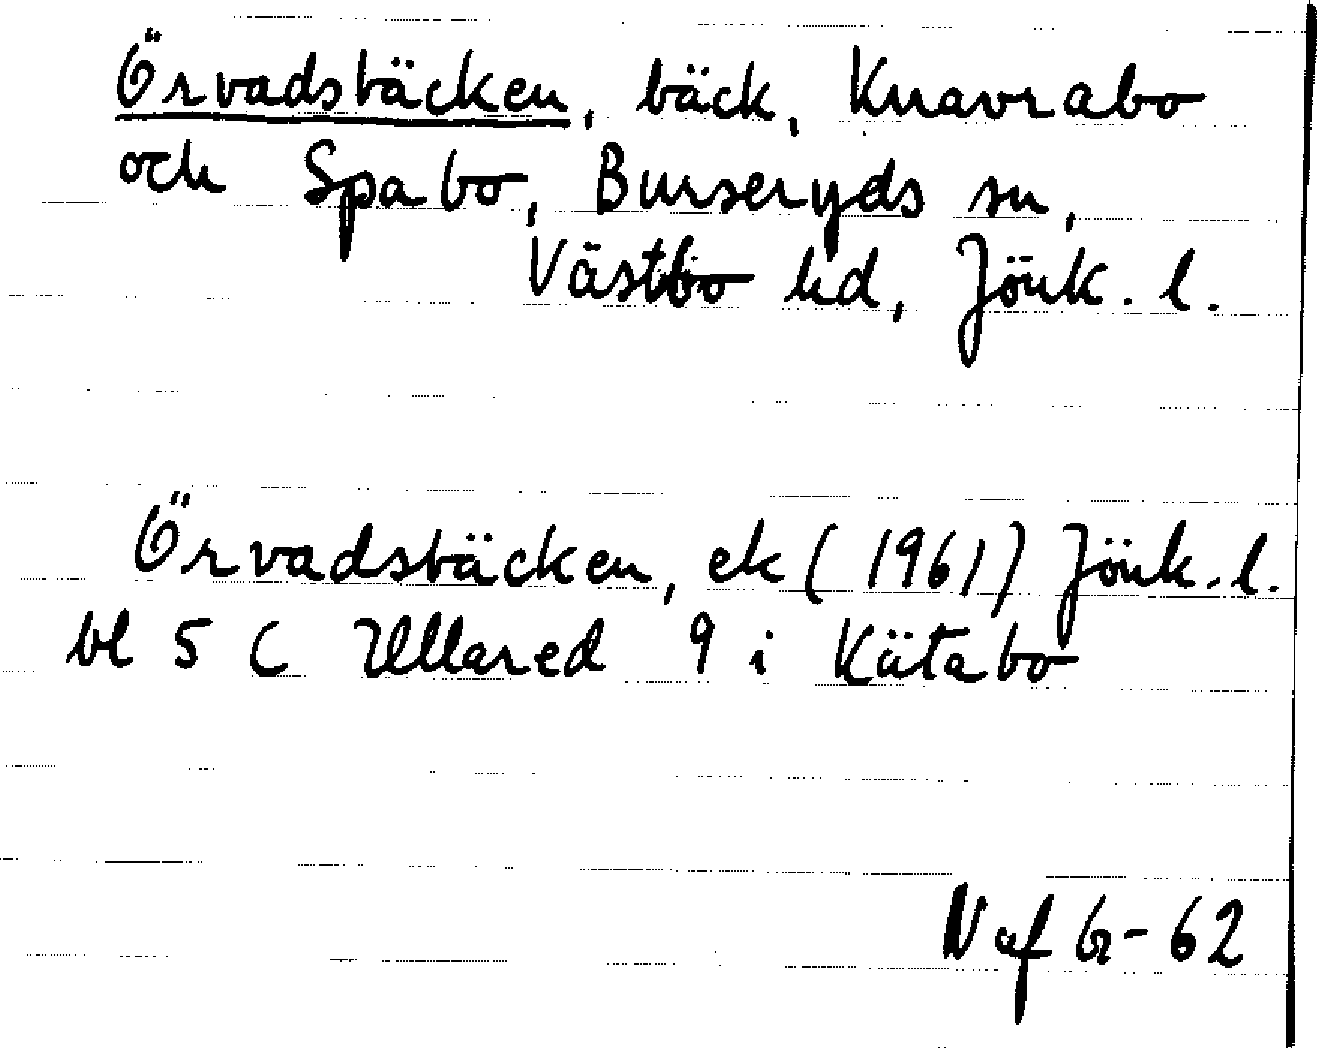 Örvadsbäcken, bäck, Knavrabo
och Spabo, Burseryds sn,
Västbo hd, Jönk. l.
Örvadsbäcken, ek (1961) Jönk. l.
bl 5 C Ullared 9 i Kätabo
N af G-62